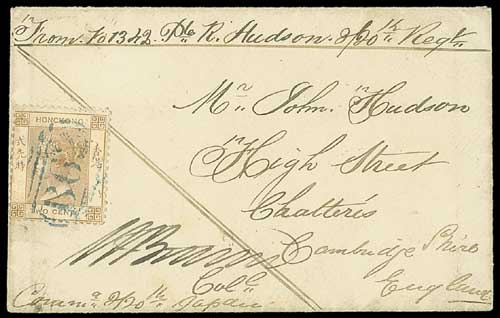 From No 1342. Pte R. Hudson. 2/20th Regt
HONG KONG
B62
TWO CENTS
Mr John. Hudson
High Street
Chatteris
Cambridge Shire
England
Colc
Commg 2/20th Japan